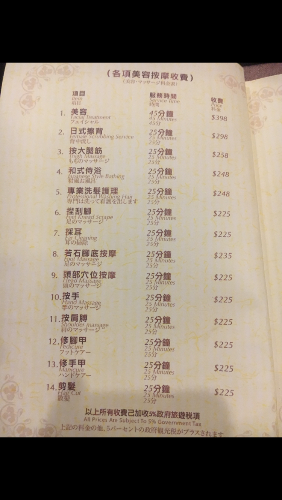 (各項美容按摩收費)
項目 服務時間 收費
1. 美容 45分鐘 $398
Facial Treatment 45 Minutes
フェイシャル 45分
2. 日式擦背 25分鐘 $298
25 Minutes
25分
3. 按大腿筋 25分鐘 $258
Thigh Massage 25 Minutes
25分
4. 和式侍浴 25分鐘 $248
25 Minutes
25分
5. 專業洗髮護理 25分鐘 $248
25 Minutes
25分
6. 採刮腳 25分鐘 $225
25 Minutes
25分
7. 採耳 25分鐘 $225
Ear Cleaning 25 Minutes
25分
8. 若石腳底按摩 25分鐘 $235
Foot Massage 25 Minutes
足のマッサージ 25分
9. 頭部穴位按摩 25分鐘 $225
Head Massage 25 Minutes
頭のマッサージ 25分
10. 按手 25分鐘 $225
Hand Massage 25 Minutes
25分
11. 按肩膊 25分鐘 $225
Shoulder Massage 25 Minutes
肩のマッサージ 25分
12. 修腳甲 25分鐘 $225
Pedicure 25 Minutes
フットケアー 25分
13. 修手甲 25分鐘 $225
Manicure 25 Minutes
ハンドケアー 25分
14. 剪髮 25分鐘 $225
Hair Cut 25 Minutes
散髪 25分
以上所有收費已加收5%政府旅遊稅項
All Prices Are Subject To 5% Government Tax
上記の料金の他、5パーセントの政府観光税がプラスされます